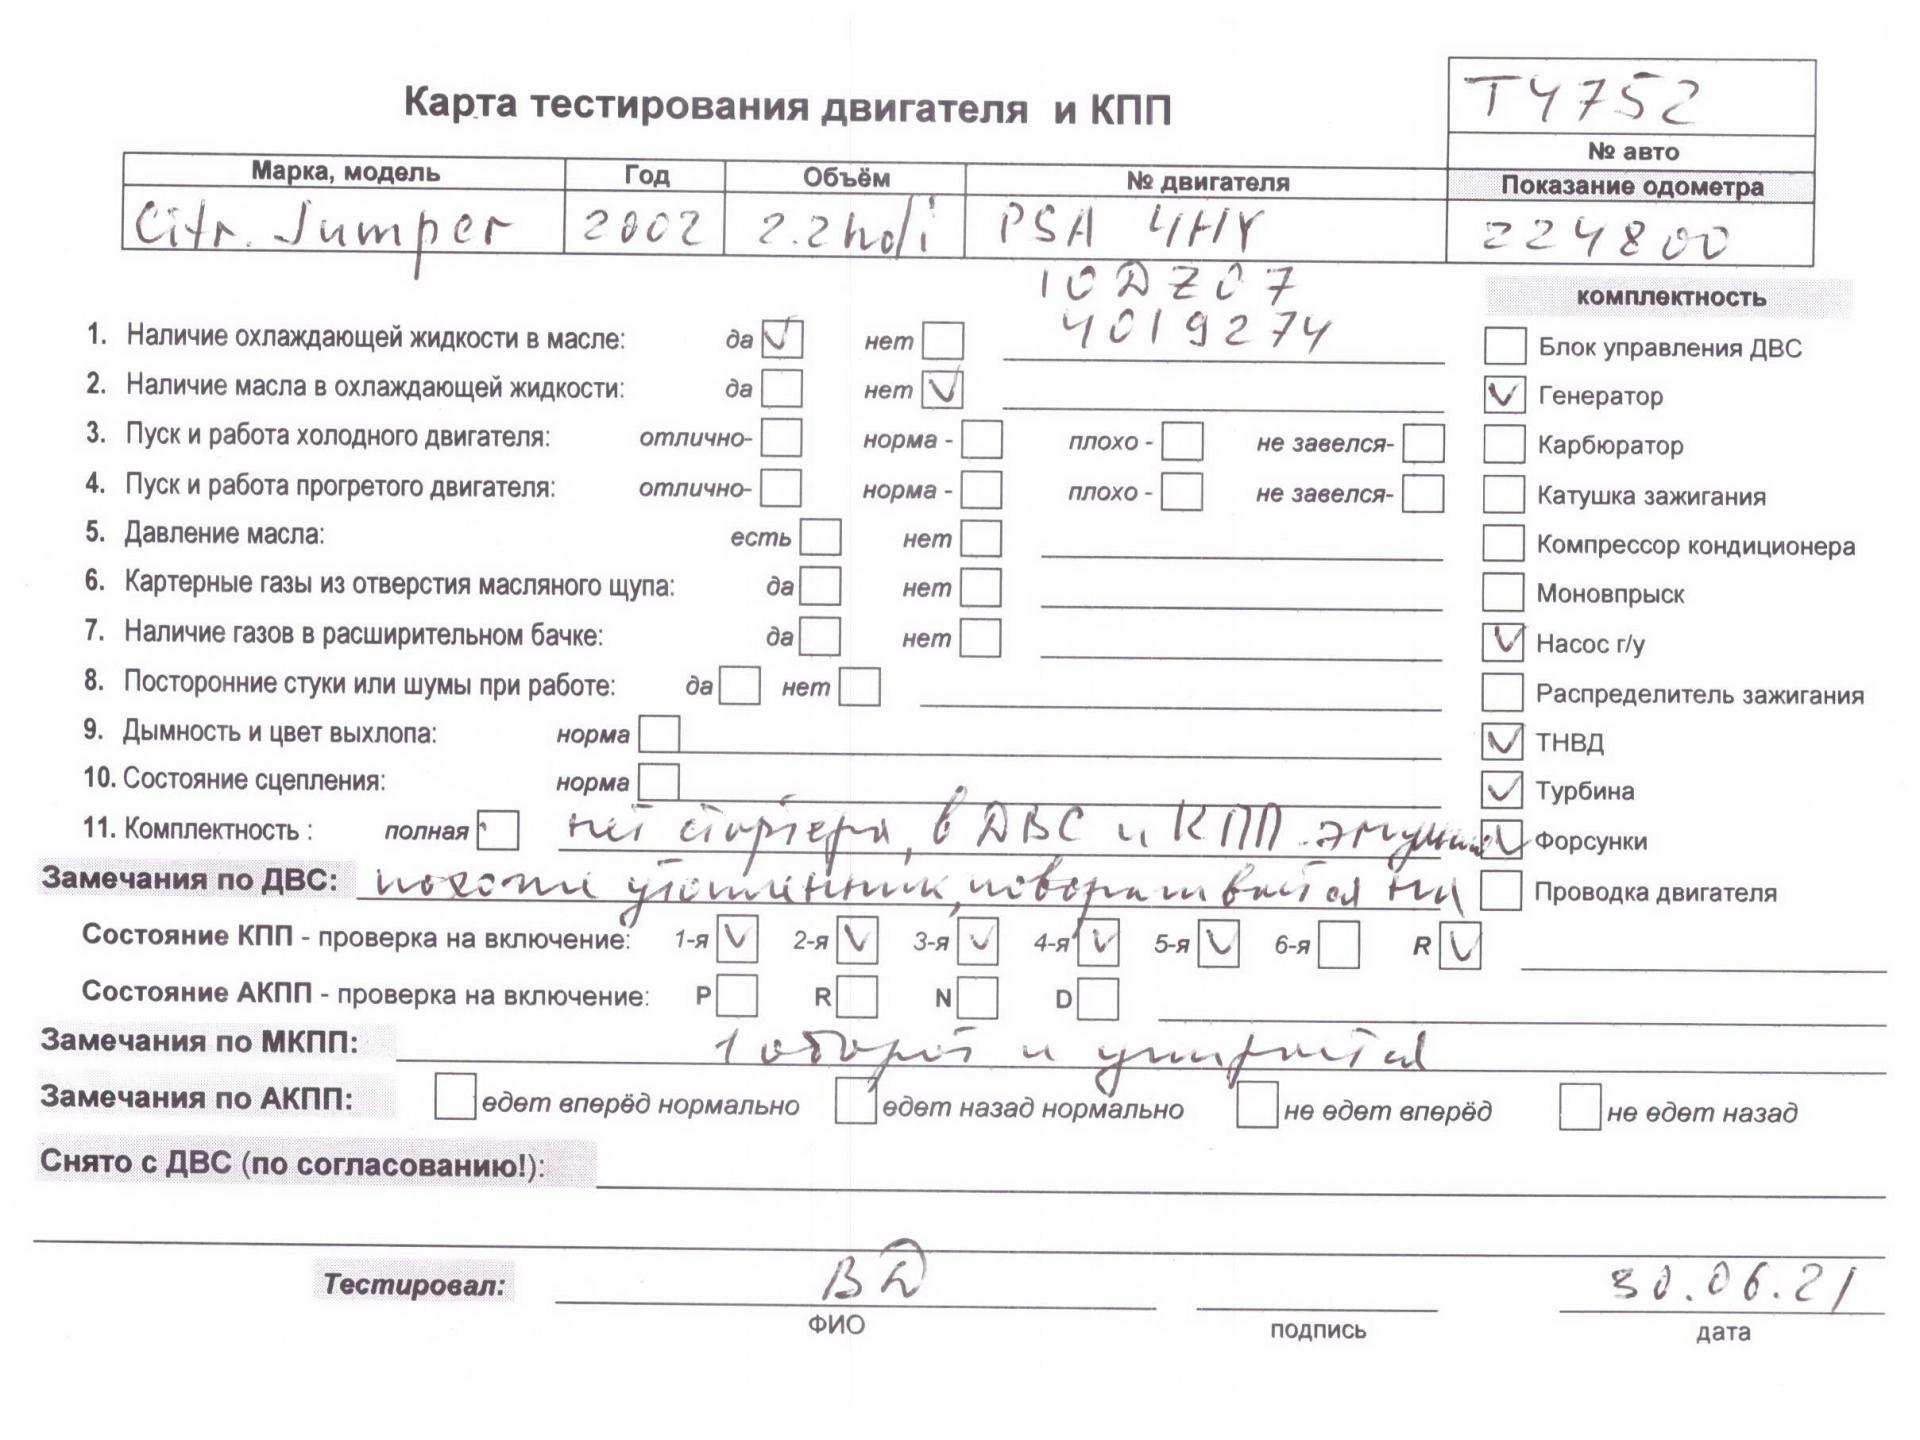 T4752
Карта тестирования двигателя и КПП
№ авто
Марка, модель Год Объём № двигателя Показание одометра
Citr. Jumper 2002 2.2hdi PSA 4HY 224800
10DZ07
4019274
комплектность
1. Наличие охлаждающей жидкости в масле: да нет
Блок управления ДВС
2. Наличие масла в охлаждающей жидкости: да нет
Генератор
3. Пуск и работа холодного двигателя: отлично- норма - плохо - не завелся-
Карбюратор
4. Пуск и работа прогретого двигателя: отлично- норма - плохо - не завелся-
Катушка зажигания
5. Давление масла: есть нет
Компрессор кондиционера
6. Картерные газы из отверстия масляного щупа: да нет
Моновпрыск
7. Наличие газов в расширительном бачке: да нет
Насос г/у
8. Посторонние стуки или шумы при работе: да нет
Распределитель зажигания
9. Дымность и цвет выхлопа: норма
ТНВД
10. Состояние сцепления: норма
Турбина
11. Комплектность : полная нет стартера, в ДВС и КПП эмульсия
Форсунки
Замечания по ДВС: похоже утопленник, поворачивается на
Проводка двигателя
Состояние КПП - проверка на включение: 1-я 2-я 3-я 4-я 5-я 6-я R
Состояние АКПП - проверка на включение: P R N D
Замечания по МКПП: 1 оборот и упирается
Замечания по АКПП: едет вперёд нормально едет назад нормально не едет вперёд не едет назад
Снято с ДВС (по согласованию!):
Тестировал: ВД 30.06.21
ФИО подпись дата